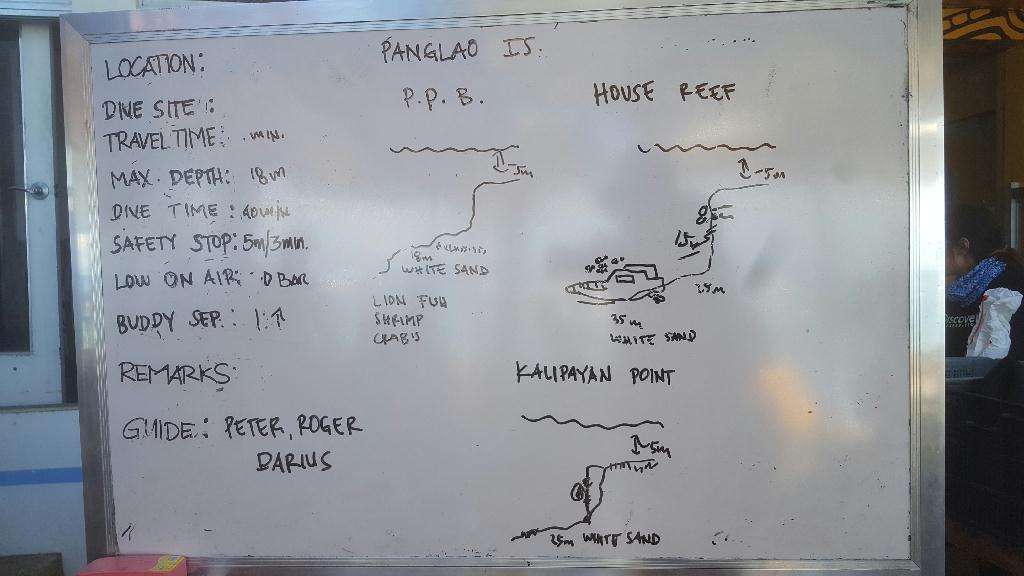 LOCATION: PANGLAO IS.
DIVE SITE: P.P.B. HOUSE REEF
TRAVEL TIME: min.
MAX. DEPTH: 18m
DIVE TIME: 40 min
SAFETY STOP: 5m/3min.
LOW ON AIR: 0 BAR
BUDDY SEP.: 1.↑
REMARKS:
GUIDE: PETER, ROGER
DARIUS
-5m
18m
WHITE SAND
LION FISH
SHRIMP
CRABS
-5m
8m
15m
25m
35m
WHITE SAND
KALIPAYAN POINT
~5m
25m WHITE SAND